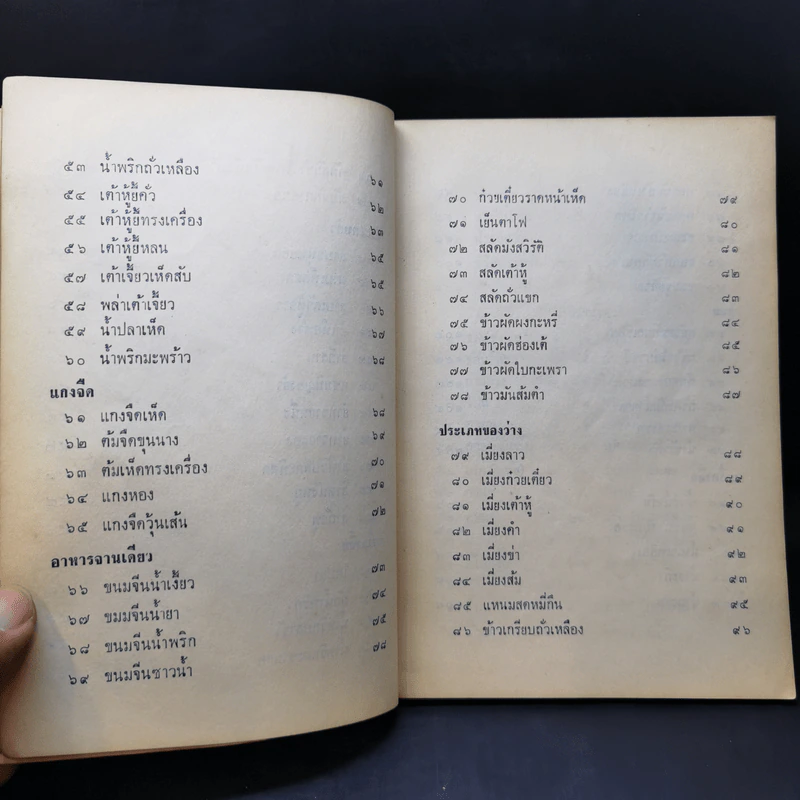 ๕๓ น้ำพริกถั่วเหลือง ๖๑
๕๔ เต้าหู้ยี้คั่ว ๖๒
๕๕ เต้าหู้ยี้ทรงเครื่อง ๖๓
๕๖ เต้าหู้ยี้หลน ๖๕
๕๗ เต้าเจี้ยวเห็ดสับ ๖๕
๕๘ พล่าเต้าเจี้ยว ๖๖
๕๙ น้ำปลาเห็ด ๖๗
๖๐ น้ำพริกมะพร้าว ๖๘
แกงจืด
๖๑ แกงจืดเห็ด ๖๘
๖๒ ต้มจืดขุนนาง ๖๙
๖๓ ต้มเห็ดทรงเครื่อง ๗๐
๖๔ แกงหอง ๗๑
๖๕ แกงจืดวุ้นเส้น ๗๒
อาหารจานเดียว
๖๖ ขนมจีนน้ำเงี้ยว ๗๓
๖๗ ขมมจีนน้ำยา ๗๔
๖๘ ขนมจีนน้ำพริก ๗๕
๖๙ ขนมจีนซาวน้ำ ๗๘
๗๐ ก๋วยเตี๋ยวราดหน้าเห็ด ๗๙
๗๑ เย็นตาโฟ ๘๐
๗๒ สลัดมังสวิรัติ ๘๑
๗๓ สลัดเต้าหู้ ๘๒
๗๔ สลัดถั่วแขก ๘๓
๗๕ ข้าวผัดผงกะหรี่ ๘๔
๗๖ ข้าวผัดฮ่องเต้ ๘๕
๗๗ ข้าวผัดใบกะเพรา ๘๖
๗๘ ข้าวมันส้มตำ ๘๗
ประเภทของว่าง
๗๙ เมี่ยงลาว ๘๘
๘๐ เมี่ยงก๋วยเตี๋ยว ๘๙
๘๑ เมี่ยงเต้าหู้ ๙๐
๘๒ เมี่ยงคำ ๙๑
๘๓ เมี่ยงข่า ๙๒
๘๔ เมี่ยงส้ม ๙๓
๘๕ แหนมสดหมี่กึน ๙๕
๘๖ ข้าวเกรียบถั่วเหลือง ๙๖